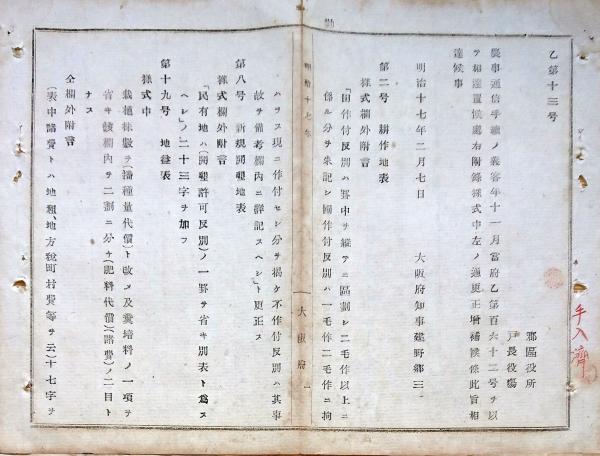 乙第十三号
郡區役所
戸長役塲
農事通信手續ノ義客年十一月當府乙第百六十二号ヲ以
テ相達置候處右附錄樣式中左ノ通更正增補候條此旨相
達候事
明治十七年二月七日
大阪府知事建野鄕三
第二号 耕作地表
樣式欄外附書
「田作付反別ハ罫中ヲ縱テニ區劃シ二毛作以上ニ
係ル分ヲ朱記シ圃作付反別ハ一毛作二毛作ニ拘
明治十七年
大阪府
一
ハラス現ニ作付セシ分ヲ揭ケ不作付反別ハ其事
故ヲ備考欄內ニ詳記スヘシ」ト更正ス
第八号 新規開墾地表
樣式欄外附書
「民有地ハ(開墾許可反別)ノ一罫ヲ省キ別表ト爲ス
ヘシ」ノ二十三字ヲ加フ
第十九号 地益表
樣式中
栽植株數ヲ(播種量代價)ト改メ及糞培料ノ一項ヲ
省キ該欄內ヲ二割ニ分ケ(肥料代價)(諸費)ノ二目ト
ナス
仝欄外附書
(表中諸費トハ地租、地方稅町村費等ヲ云)十七字ヲ
手入濟